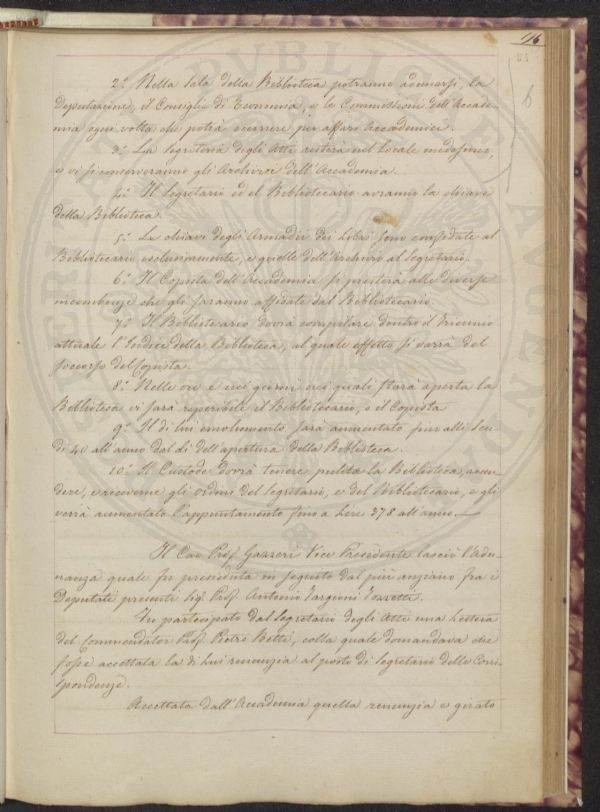 116
84
6
2.° Nella Sala della Biblioteca potranno adunarsi, la
Deputazione, il Consiglio di Economia, e le Commissioni dell'Accade-
mia ogni volta che potrà occorrere per affari Accademici.
3.° La Segreteria degli Atti resterà nel locale medesimo,
e vi si conserveranno gli Archivi dell'Accademia.
4.° Il Segretario ed il Bibliotecario avranno la chiave
della Biblioteca.
5.° Le chiavi degli Armadii dei Libri sono confidate al
Bibliotecario esclusivamente, e quelle dell'Archivio al Segretario.
6.° Il Copista dell'Accademia si presterà alle diverse
incombenze che gli saranno affidate dal Bibliotecario
7.° Il Bibliotecario dovrà compilare dentro il triennio
attuale l'Indice della Biblioteca, al quale effetto si varrà del
soccorso del Copista.
8.° Nelle ore e nei giorni nei quali starà aperta la
Biblioteca vi sarà reperibile il Bibliotecario, o il Copista
9.° Il di lui emolumento sarà aumentato fino alli Scu-
di 40 all'anno dal dì dell'apertura della Biblioteca.
10.° Il Custode dovrà tenere pulita la Biblioteca,
e riceverne gli ordini del Segretario, e del Bibliotecario, e gli
verrà aumentato l'appuntamento fino a Lire 378 all'anno.
Il Cav. Prof. Gazzeri Vice Presidente lasciò l'Adu-
nanza quale fu presieduta in seguito dal più anziano fra i
Deputati presenti Sig. Prof. Antonio Targioni Tozzetti.
Fu partecipato dal Segretario degli Atti una Lettera
del Commendator Prof. Pietro Betti, colla quale domandava che
fosse accettata la di lui renunzia al posto di Segretario delle Corri-
spondenze.
Accettata dall'Accademia quella renunzia e girato